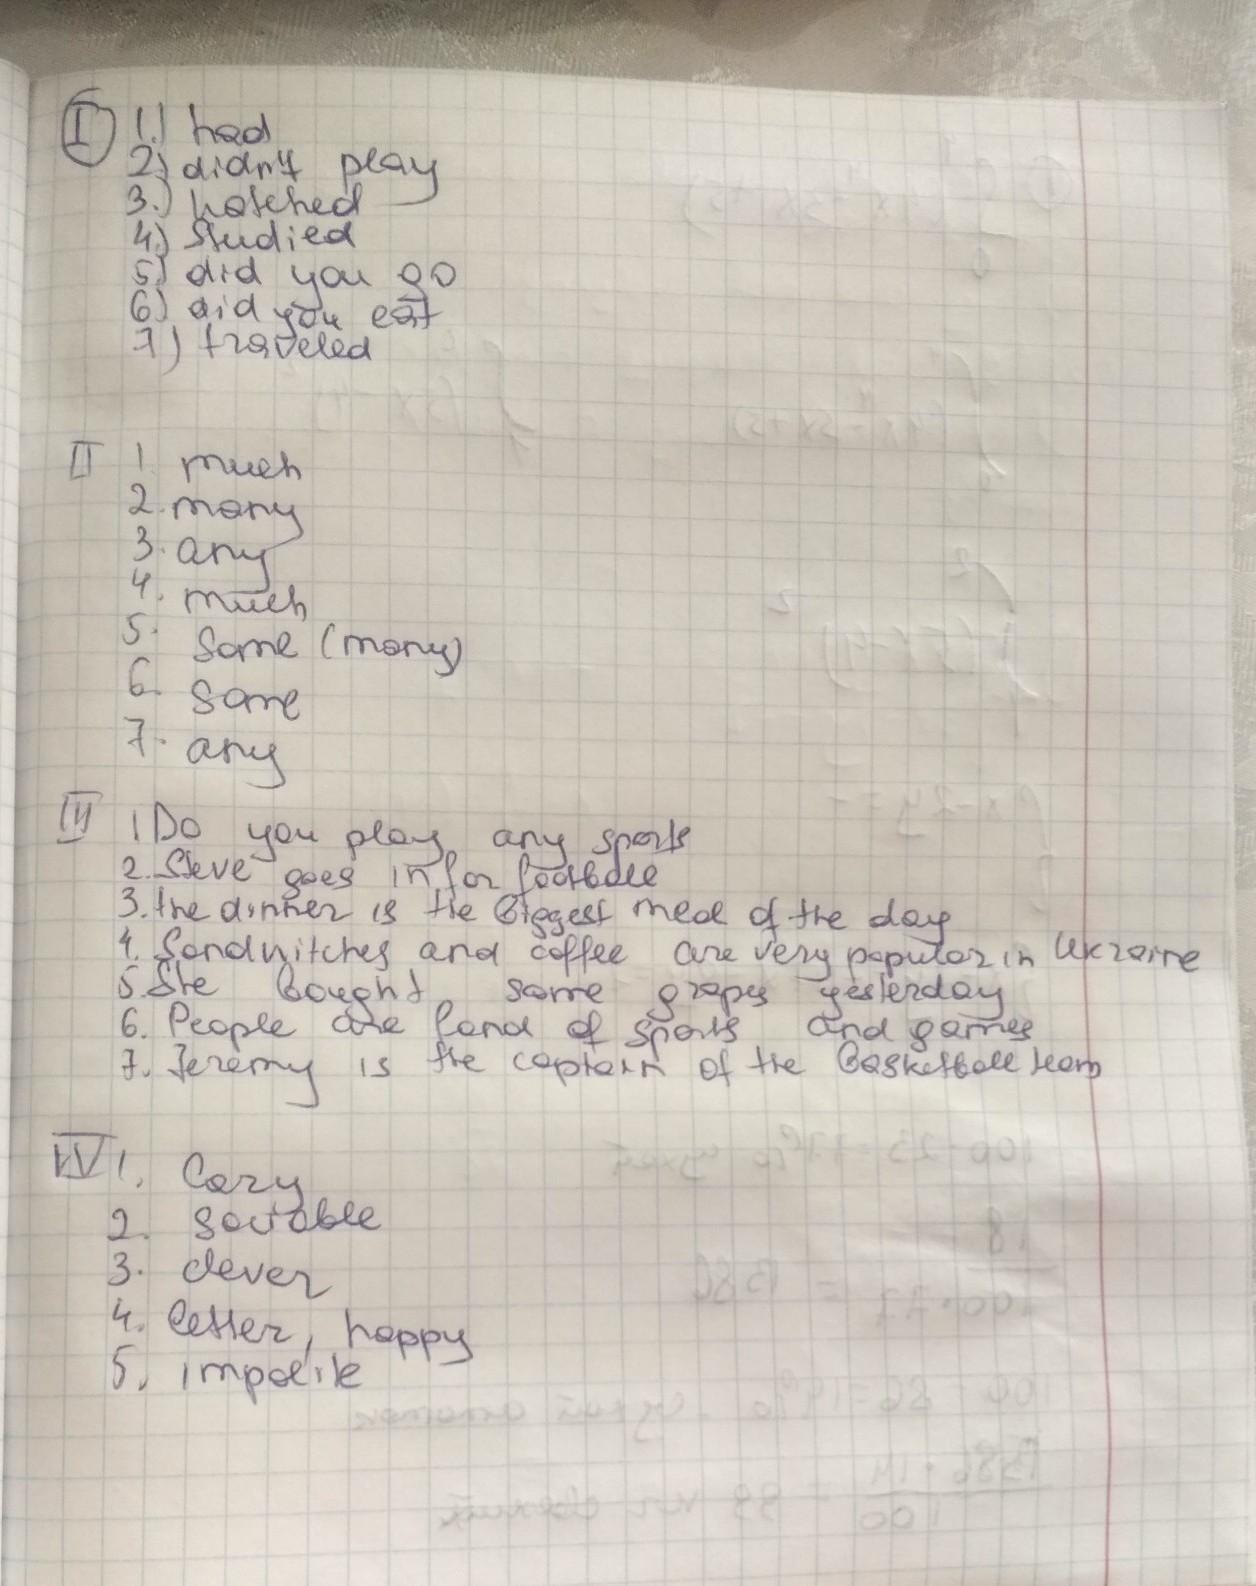 I 1.) had
2) didn't play
3.) watched
4.) Studied
5) did you go
6) did you eat
7) traveled
II 1 much
2. many
3. any
4. much
5. Some (many)
6. Some
7. any
III 1 Do you play any sports
2. Steve goes in for football
3. the dinner is the Biggest meal of the day
4. Sandwitches and coffee are very popular in Ukraine
5. She Bought some grapes yesterday
6. People are fond of sports and games
7. Jeremy is the captain of the Basketball team
IV 1. Cozy
2.
3. clever
4. letter, happy
5. impolite